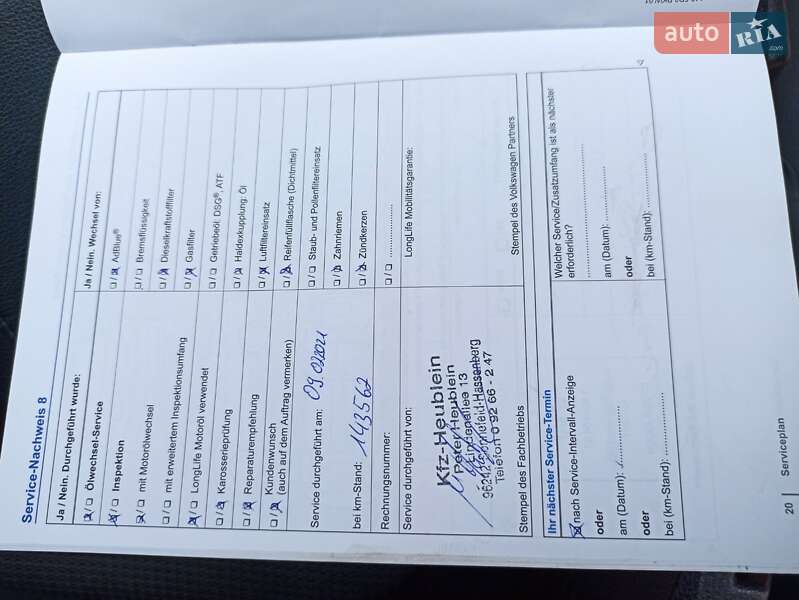 auto RIA.com
Service-Nachweis 8
Ja / Nein. Durchgeführt wurde:
Ölwechsel-Service
Inspektion
mit Motorölwechsel
mit erweitertem Inspektionsumfang
LongLife Motoröl verwendet
Karosserieprüfung
Reparaturempfehlung
Kundenwunsch
(auch auf dem Auftrag vermerken)
Ja / Nein. Wechsel von:
AdBlue®
Bremsflüssigkeit
Dieselkraftstofffilter
Gasfilter
Getriebeöl: DSG®, ATF
Haldexkupplung: Öl
Luftfiltereinsatz
Reifenfüllflasche (Dichtmittel)
Staub- und Pollenfiltereinsatz
Zahnriemen
Zündkerzen
Service durchgeführt am:
bei km-Stand: 143562
Rechnungsnummer:
Service durchgeführt von:
Kfz-Heublein
Peter Heublein
Lindenallee 13
Telefon 0 92 66 - 2 47
Stempel des Fachbetriebs
LongLife Mobilitätsgarantie:
Stempel des Volkswagen Partners
Ihr nächster Service-Termin
nach Service-Intervall-Anzeige
oder
am (Datum):
oder
bei (km-Stand):
Welcher Service/Zusatzumfang ist als nächster
erforderlich?
am (Datum):
oder
bei (km-Stand):
20 Serviceplan